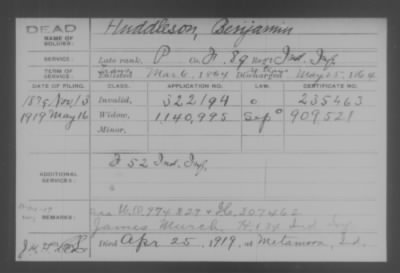 DEAD
NAME OF SOLDIER: Huddleson, Benjamin
SERVICE: Late rank, P Co. F. 89 Reg't Ind. Inf.
TERM OF SERVICE: Enlisted Mar 6, 1864 Discharged May 25, 1864
DATE OF FILING. CLASS. APPLICATION NO. LAW. CERTIFICATE NO.
1879 Nov 13 Invalid, 322194 0 235463
1919 May 16 Widow, 1,140,995 Sep 909521
Minor,
ADDITIONAL SERVICES: F 52 Ind. Inf.
REMARKS: W.O. 974827 + 207462
James Murch, Ind Inf
Died Apr 25, 1919, at Metamora, Ind.